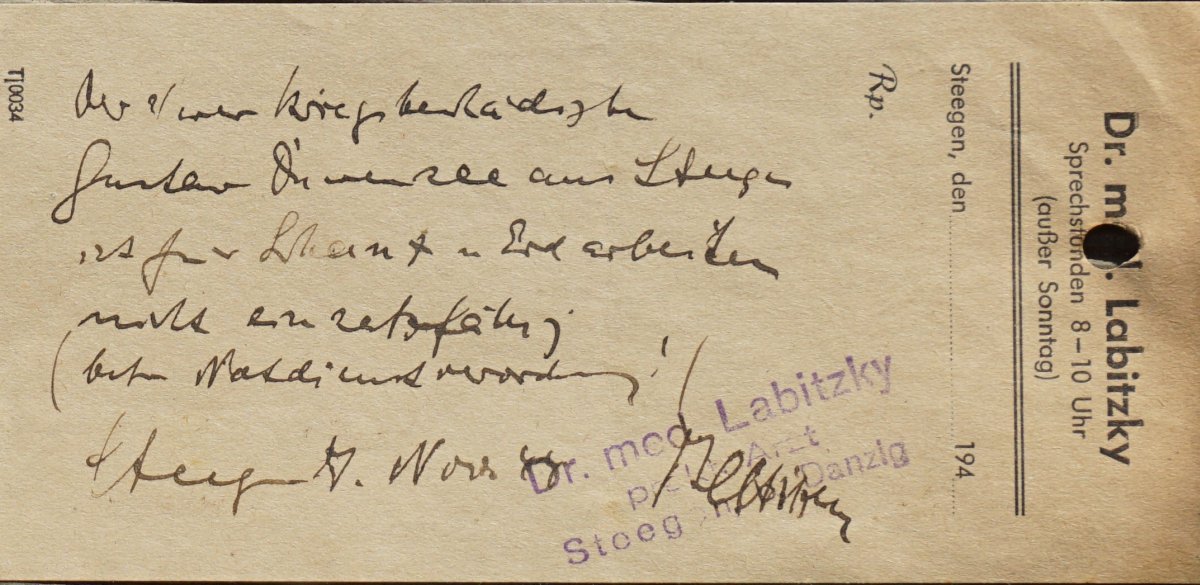 Dr. med. Labitzky
Sprechstunden 8–10 Uhr
(außer Sonntag)
Steegen, den 194
Rp.
Der schwer Kriegsbeschädigte
Gustav aus Steegen
ist für Schanz u Erdarbeiten
nicht einsatzfähig
(betr. Notdienstverordnung!)
Steegen Nov.
Dr. med. Labitzky
prakt. Arzt
Steegen Danzig
Tj0034